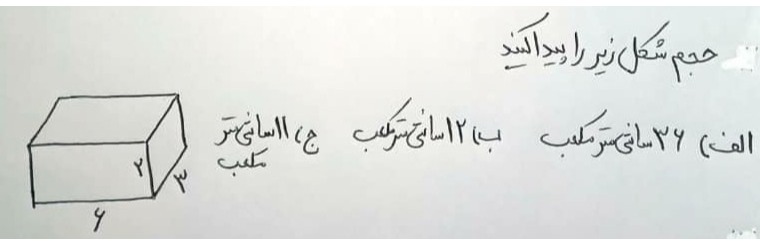 حجم شکل زیر را پیدا کنید
الف) ۳۶ سانتی متر مکعب ب) ۱۲ سانتی متر مکعب ج) ۱۱ سانتی متر
مکعب
۲
۳
۶